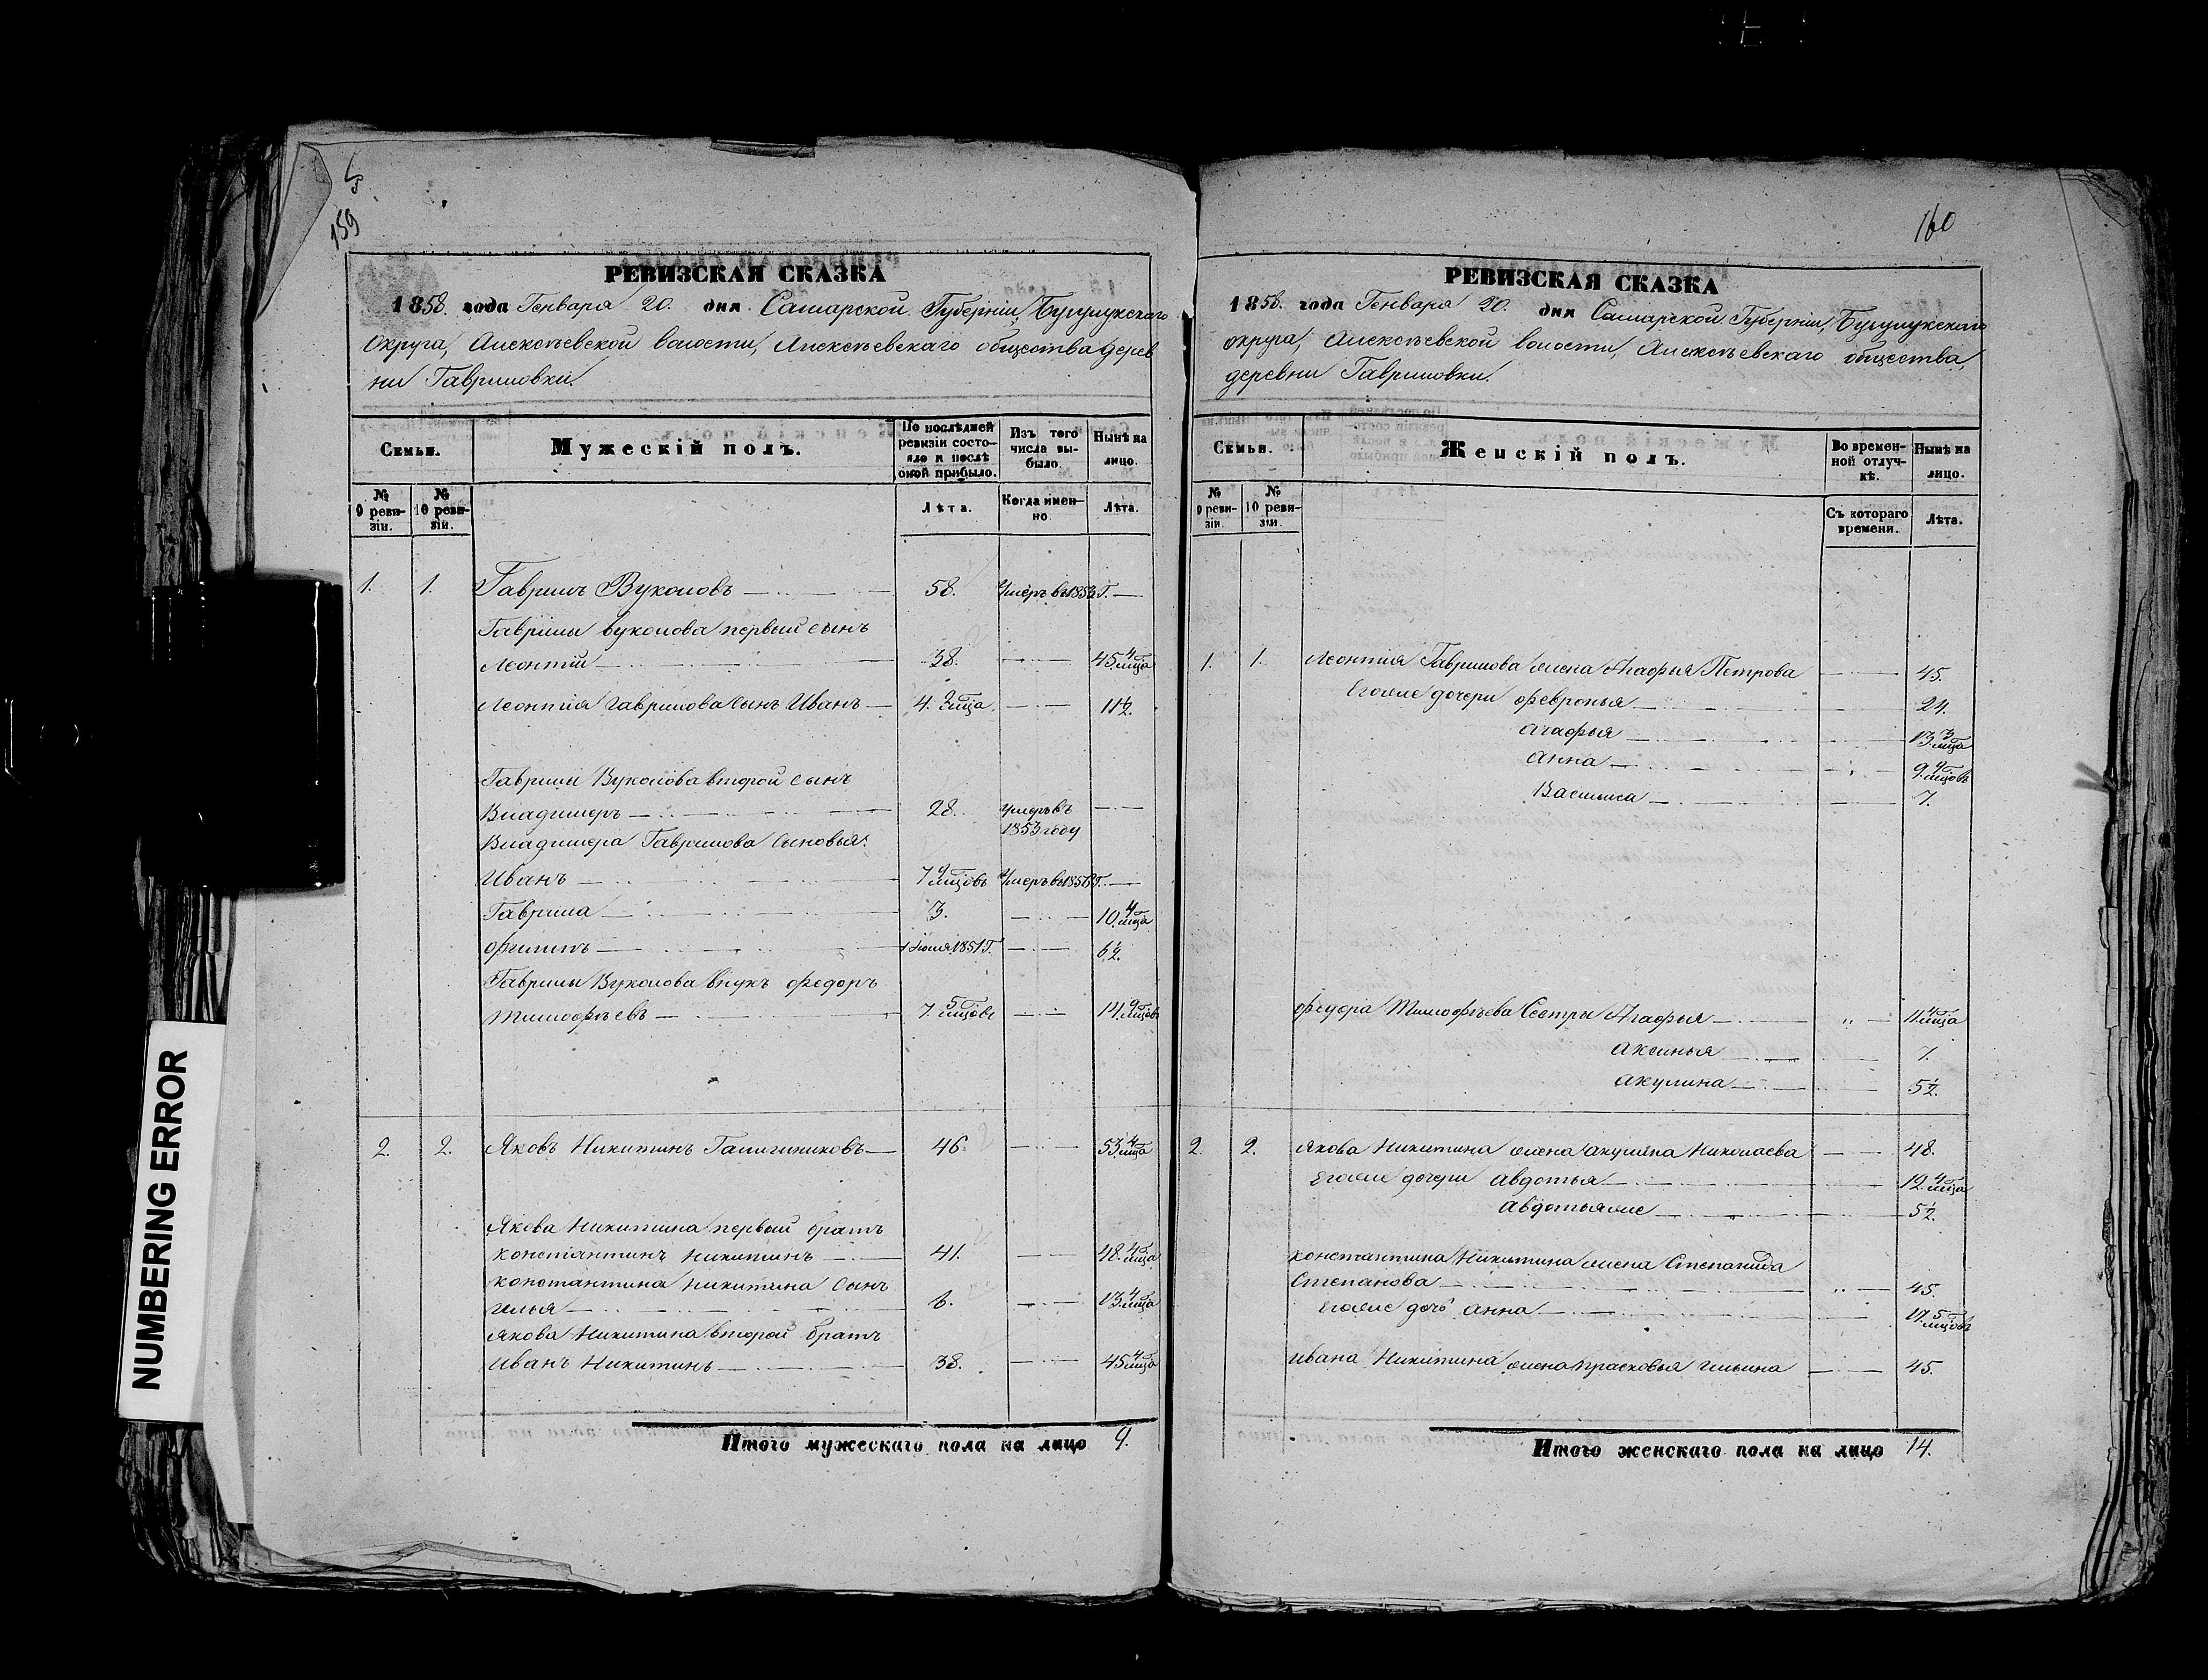 159
РЕВИЗСКАЯ СКАЗКА
1858. года Генваря 20. дня Самарской Губерніи, Бугурусланскаго
Округа, Алексѣевской волости, Алексѣевскаго общества дерев
ни Гавриловки.
Семьи.
Мужескій полъ.
По послѣдней ревизіи состояло и послѣ оной прибыло.
Изъ того числа выбыло.
Нынѣ на лицо.
№ 9 ревизіи.
№ 10 ревизіи.
Лѣта.
Когда именно
Лѣта.
1. 1. Гаврилъ Вуколовъ 58. Умеръ въ 1853 Г.
Гаврилы Вуколова первый сынъ
Леонтій 38. 45 4 мца
Леонтія Гаврилова сынъ Иванъ 4. 2 мца 11½.
Гаврилы Вуколова второй сынъ
Владимеръ 28. умеръ въ
1853 году
Владимера Гаврилова сыновья:
Иванъ 7 9 мцовъ Умеръ въ 1856 Г.
Гаврила 3. 10. 4 мца
Филипъ 1 Июля 1851 Г. 6½.
Гаврилы Вуколова внукъ Федоръ
Тимофѣевъ 7 5 мцовъ 14. 9 мцовъ
2. 2. Яковъ Никитинъ 46 53 4 мца
Якова Никитина первый братъ
Константинъ Никитинъ 41. 48. 4 мца
Константина Никитина сынъ
Илья 6. 13. 4 мца
Якова Никитина второй братъ
Иванъ Никитинъ 38. 45 4 мца
Итого мужескаго пола на лицо 9.
160
РЕВИЗСКАЯ СКАЗКА
1858. года Генваря 20. дня Самарской Губерніи, Бугурусланскаго
округа, Алексѣевской волости, Алексѣевскаго общества,
деревни Гавриловки.
Семьи.
Женскій полъ.
Во временной отлучкѣ.
Нынѣ на лицо.
№ 9 ревизіи.
№ 10 ревизіи.
Съ котораго времени.
Лѣта.
1. 1. Леонтія Гаврилова жена Агафья Петрова 45.
Егоже дочери Февронья 24.
Агафья 13. 3 мца
Анна 9. 4 мцовъ
Василиса 7.
Федора Тимофѣева Сестры Агафья " 11. 4 мца
Аксинья 7.
Акулина 5½.
2. 2. Якова Никитина жена Акулина Николаева 48.
Егоже дочери Авдотья 12. 4 мца
Авдотьяже 5½.
Константина Никитина жена Степанида
Степанова " 45.
Егоже дочь Анна 11. 5 мцовъ
Ивана Никитина жена Прасковья Ильина 45.
Итого женскаго пола на лицо 14.
NUMBERING ERROR